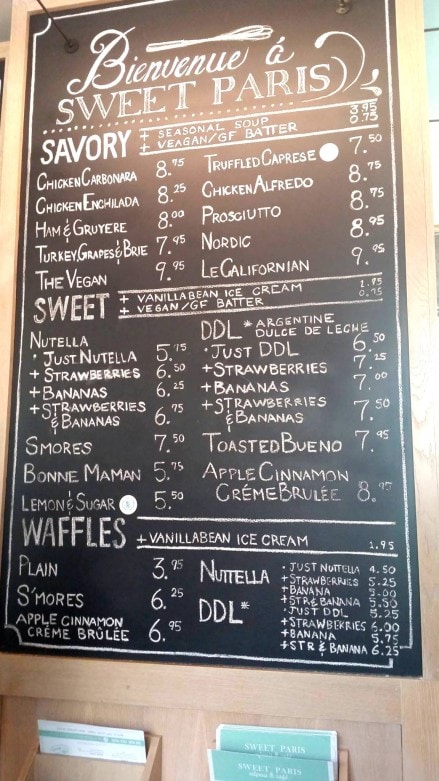 Bienvenue á
SWEET PARIS
SAVORY + SEASONAL SOUP 3.95
+ VEAGAN/GF BATTER 0.75
CHICKEN CARBONARA 8.75
CHICKEN ENCHILADA 8.25
HAM & GRUYERE 8.00
TURKEY, GRAPES & BRIE 7.95
THE VEGAN 9.95
TRUFFLED CAPRESE 7.50
CHICKEN ALFREDO 8.75
PROSCIUTTO 8.75
NORDIC 8.95
LE CALIFORNIAN 9.95
SWEET + VANILLABEAN ICE CREAM 1.95
+ VEGAN/GF BATTER 0.75
NUTELLA
· JUST NUTELLA 5.75
+ STRAWBERRIES 6.50
+ BANANAS 6.25
+ STRAWBERRIES
& BANANAS 6.75
SMORES 7.50
BONNE MAMAN 5.75
LEMON & SUGAR 5.50
DDL * ARGENTINE
DULCE DE LECHE
· JUST DDL 6.50
+ STRAWBERRIES 7.25
+ BANANAS 7.00
+ STRAWBERRIES
& BANANAS 7.50
TOASTED BUENO 7.95
APPLE CINNAMON
CRÉME BRULÉE 8.95
WAFFLES + VANILLABEAN ICE CREAM 1.95
PLAIN 3.95
S'MORES 6.25
APPLE CINNAMON
CRÉME BRÛLÉE 6.95
NUTTELLA · JUST NUTTELLA 4.50
+ STRAWBERRIES 5.25
+ BANANA 5.00
+ STR & BANANA 5.50
DDL* · JUST DDL 5.25
+ STRAWBERRIES 6.00
+ BANANA 5.75
+ STR & BANANA 6.25
SWEET PARIS
SWEET PARIS
crêperie & café